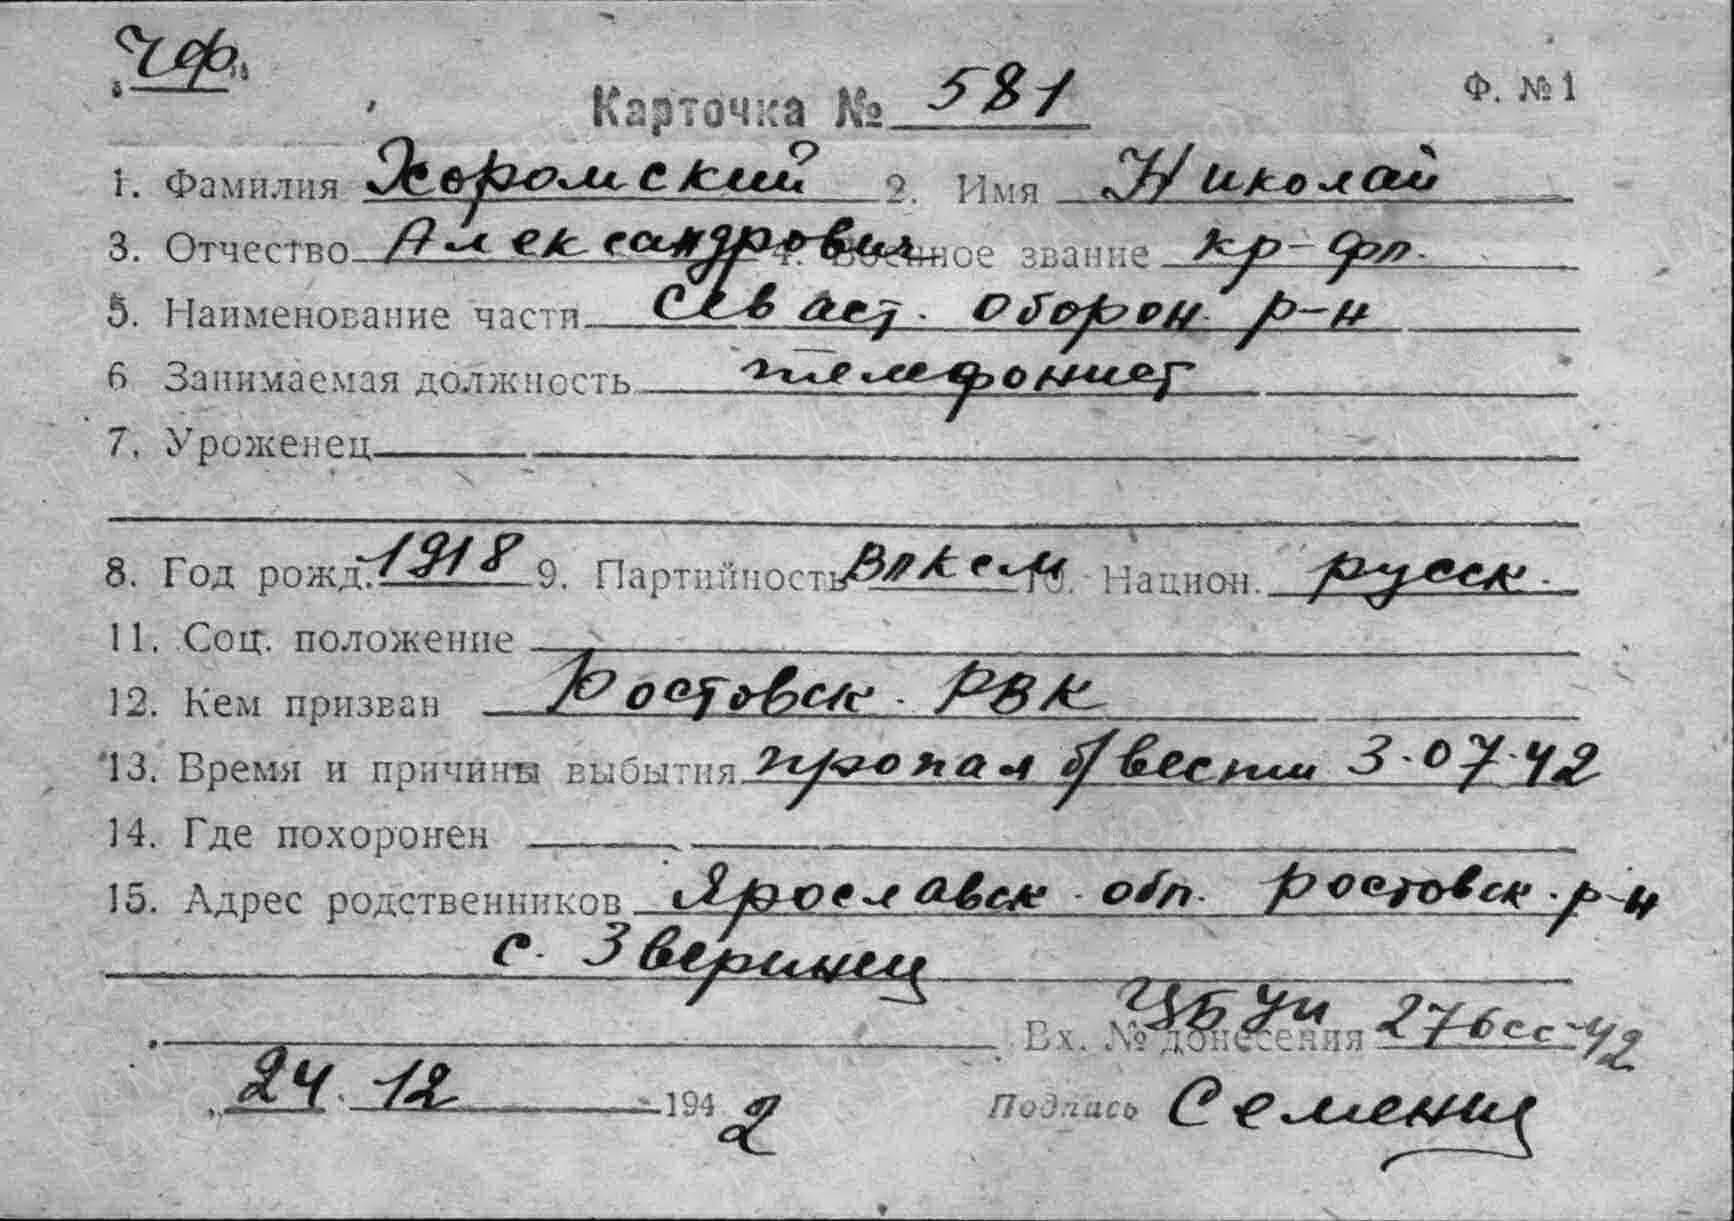 „ЧФ"
Карточка № 581 Ф. № 1
1. Фамилия Хоромский 2. Имя Николай
3. Отчество Александрович 4. Военное звание кр-фл.
5. Наименование части Севаст. оборон. р-н
6 Занимаемая должность телефонист
7. Уроженец
8. Год рожд. 1918 9. Партийность ВЛКСМ 10. Национ. русск.
11. Соц. положение
12. Кем призван Ростовск. РВК
13. Время и причины выбытия пропал б/вести 3.07.42
14. Где похоронен
15. Адрес родственников Ярославск. обл. Ростовск. р-н
с. Зверинец
ЦБ
Вх. № донесения 276сс-42
„24. 12 1942
Подпись Семениц